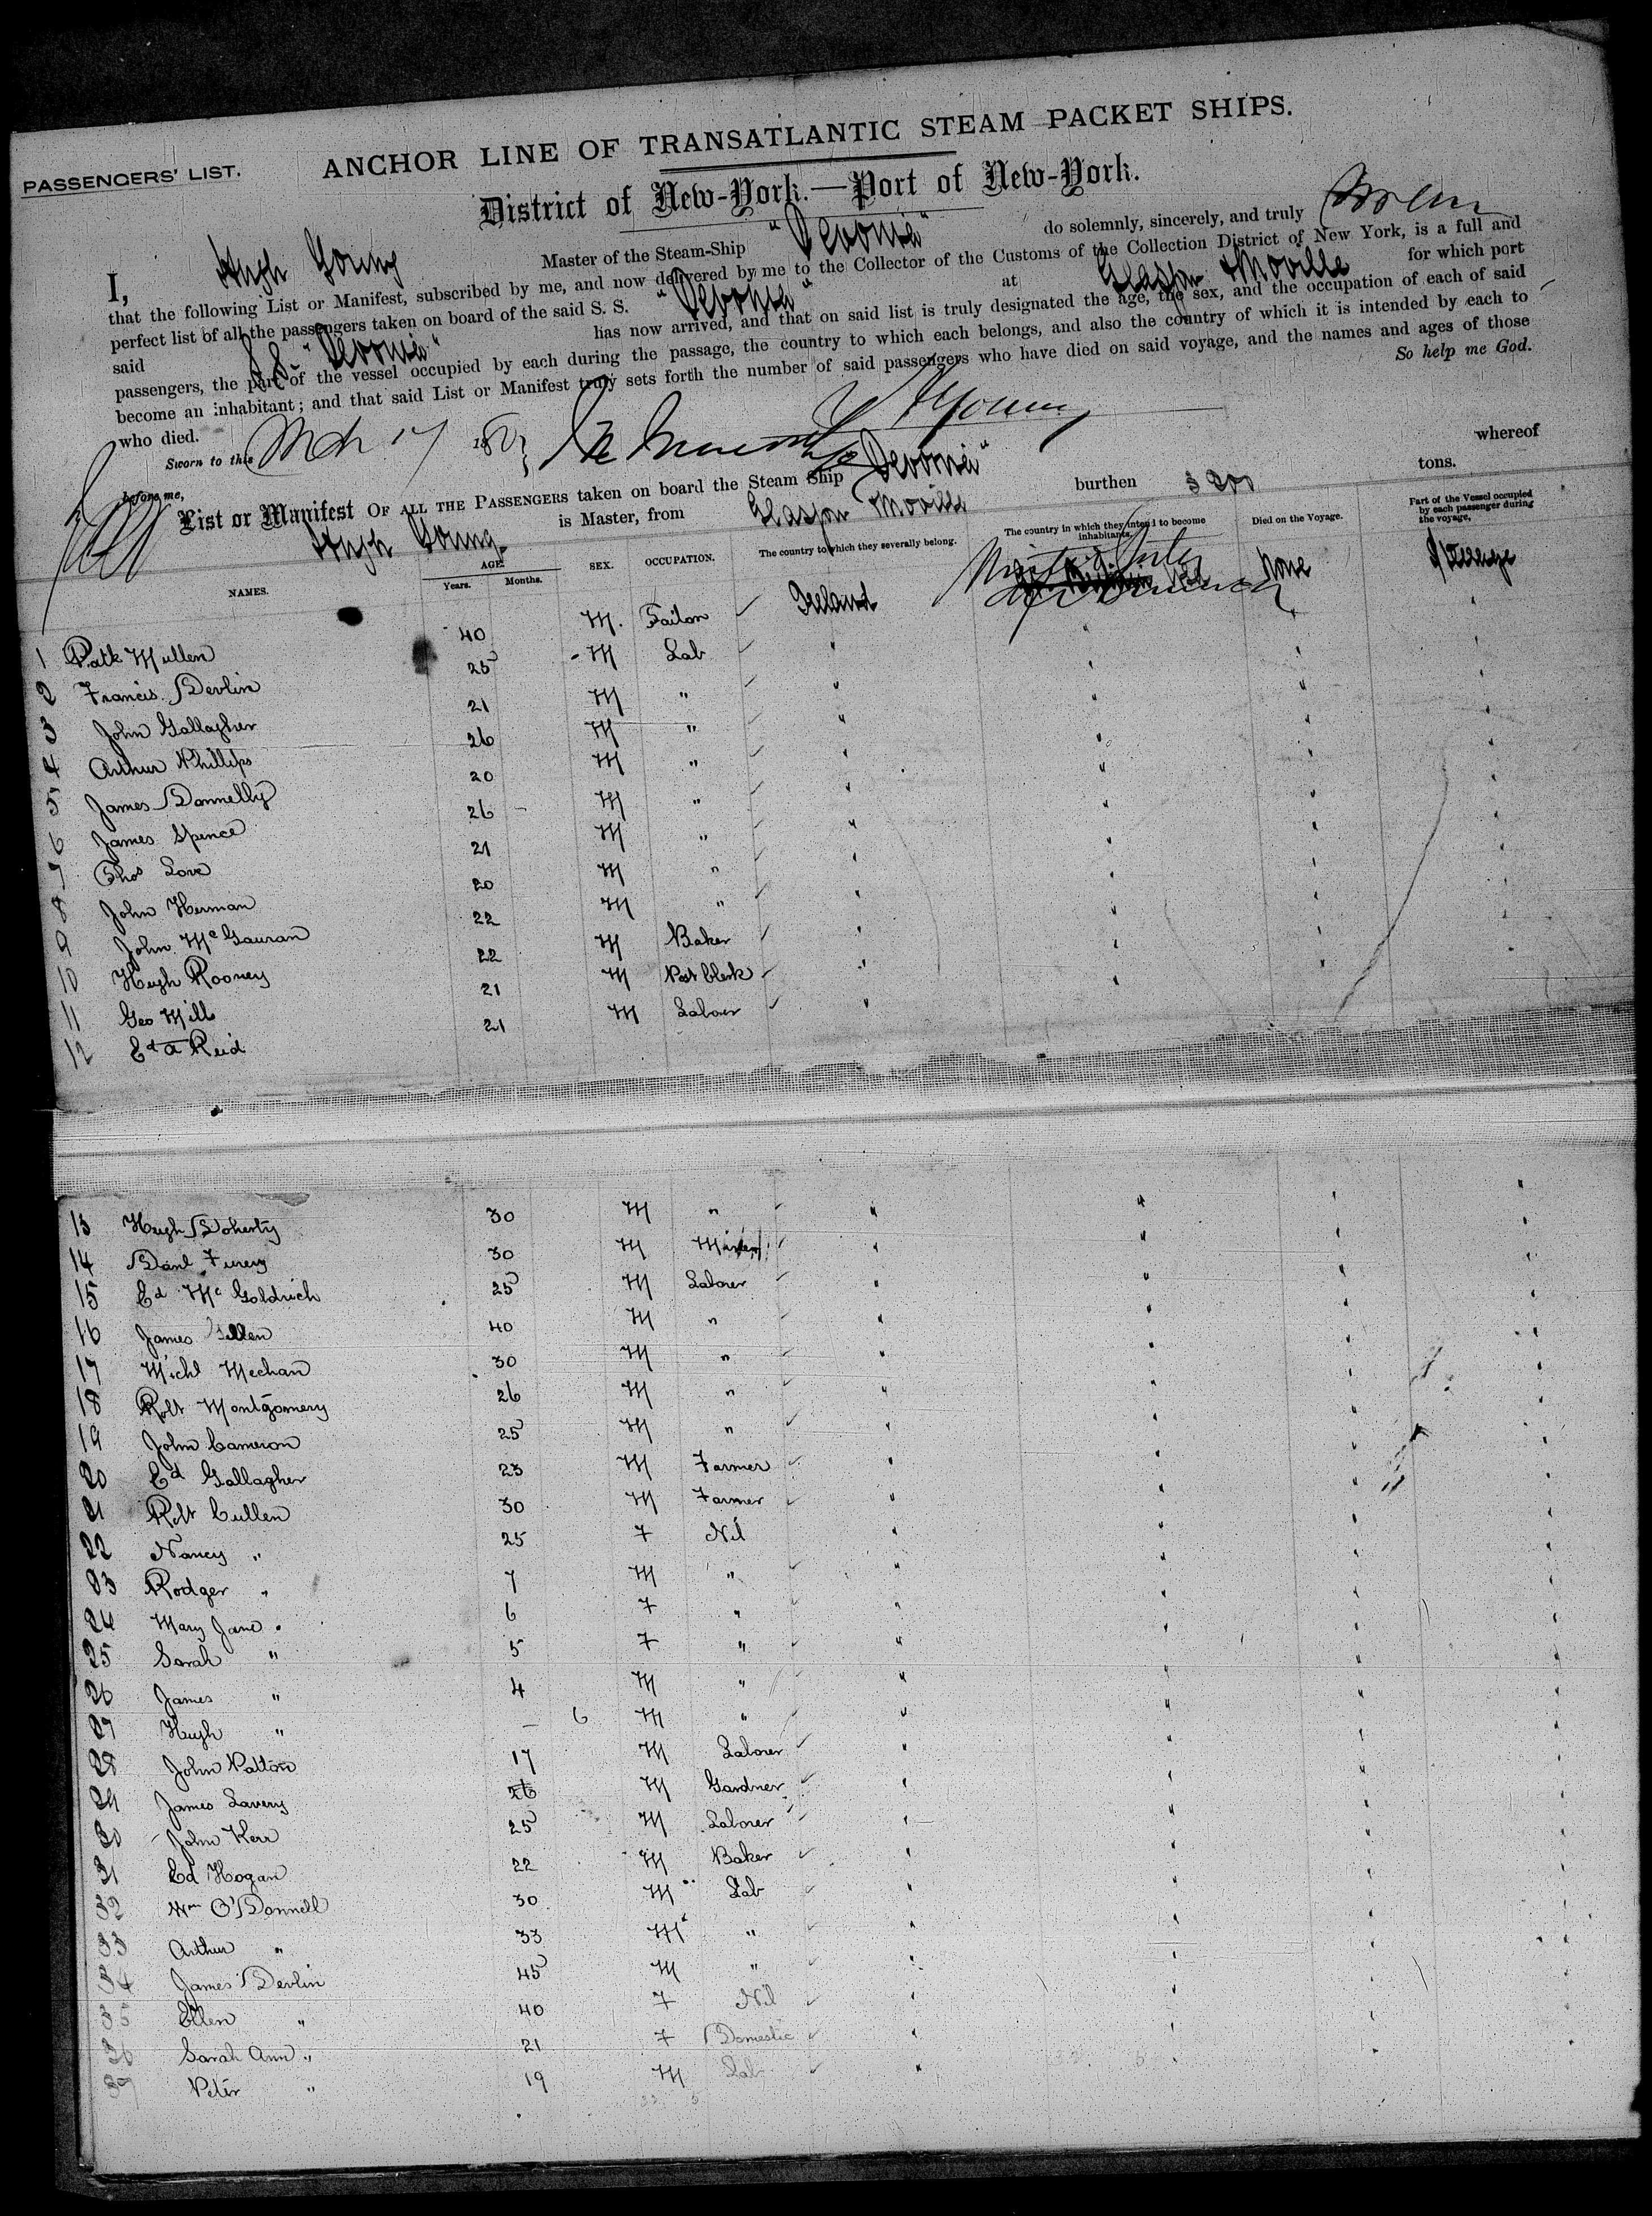 PASSENGERS' LIST.
ANCHOR LINE OF TRANSATLANTIC STEAM PACKET SHIPS.
District of New-York.—Port of New-York.
I, Hugh Young Master of the Steam-Ship "Devonia" do solemnly, sincerely, and truly swear
that the following List or Manifest, subscribed by me, and now delivered by me to the Collector of the Customs of the Collection District of New York, is a full and
perfect list of all the passengers taken on board of the said S. S. "Devonia" at Glasgow & Moville for which port
said S.S. "Devonia" has now arrived, and that on said list is truly designated the age, the sex, and the occupation of each of said
passengers, the part of the vessel occupied by each during the passage, the country to which each belongs, and also the country of which it is intended by each to
become an inhabitant; and that said List or Manifest truly sets forth the number of said passengers who have died on said voyage, and the names and ages of those
who died. So help me God.
Sworn to this Mch 17 188 H Young
before me,
List or Manifest OF ALL THE PASSENGERS taken on board the Steam Ship "Devonia" whereof
Hugh Young is Master, from Glasgow Moville burthen tons.
NAMES. AGE. Years. Months. SEX. OCCUPATION. The country to which they severally belong. The country in which they intend to become inhabitants. Died on the Voyage. Part of the Vessel occupied by each passenger during the voyage.
1 Patk Mullen 40 M. Tailor Ireland United States of America None Steerage
2 Francis Devlin 25 M Lab " " " "
3 John Gallagher 21 M " " " " "
4 Arthur Phillips 26 M " " " " "
5 James Donnelly 20 M " " " " "
6 James Spence 26 M " " " " "
7 Thos Love 21 M " " " " "
8 John Herman 20 M " " " " "
9 John McGauran 22 M " " " " "
10 Hugh Rooney 22 M Baker " " " "
11 Geo Mills 21 M clerk " " " "
12 Ed A Reid 21 M Laborer " " " "
13 Hugh Doherty 30 M " " " " "
14 Danl Furey 30 M " " " "
15 Ed McGoldrich 25 M Laborer " " " "
16 James 40 M " " " " "
17 Michl Mechan 30 M " " " " "
18 Robt Montgomery 26 M " " " " "
19 John Cameron 25 M " " " " "
20 Ed Gallagher 23 M Farmer " " " "
21 Robt Cullen 30 M Farmer " " " "
22 Nancy " 25 F Nil " " " "
23 Rodger " 7 M " " " " "
24 Mary Jane " 6 F " " " " "
25 Sarah " 5 F " " " " "
26 James " 4 M " " " " "
27 Hugh " – 6 M " " " " "
28 John Patton 17 M Laborer " " " "
29 James Lavery 26 M Gardner " " " "
30 John Kerr 25 M Laborer " " " "
31 Ed Hogan 22 M Baker " " " "
32 Wm O'Donnell 30 M Lab " " " "
33 Arthur " 33 M " " " " "
34 James Devlin 45 M " " " " "
35 Ellen " 40 F Nil " " " "
36 Sarah Ann " 21 F Domestic " " " "
37 Peter " 19 M Lab " " " "